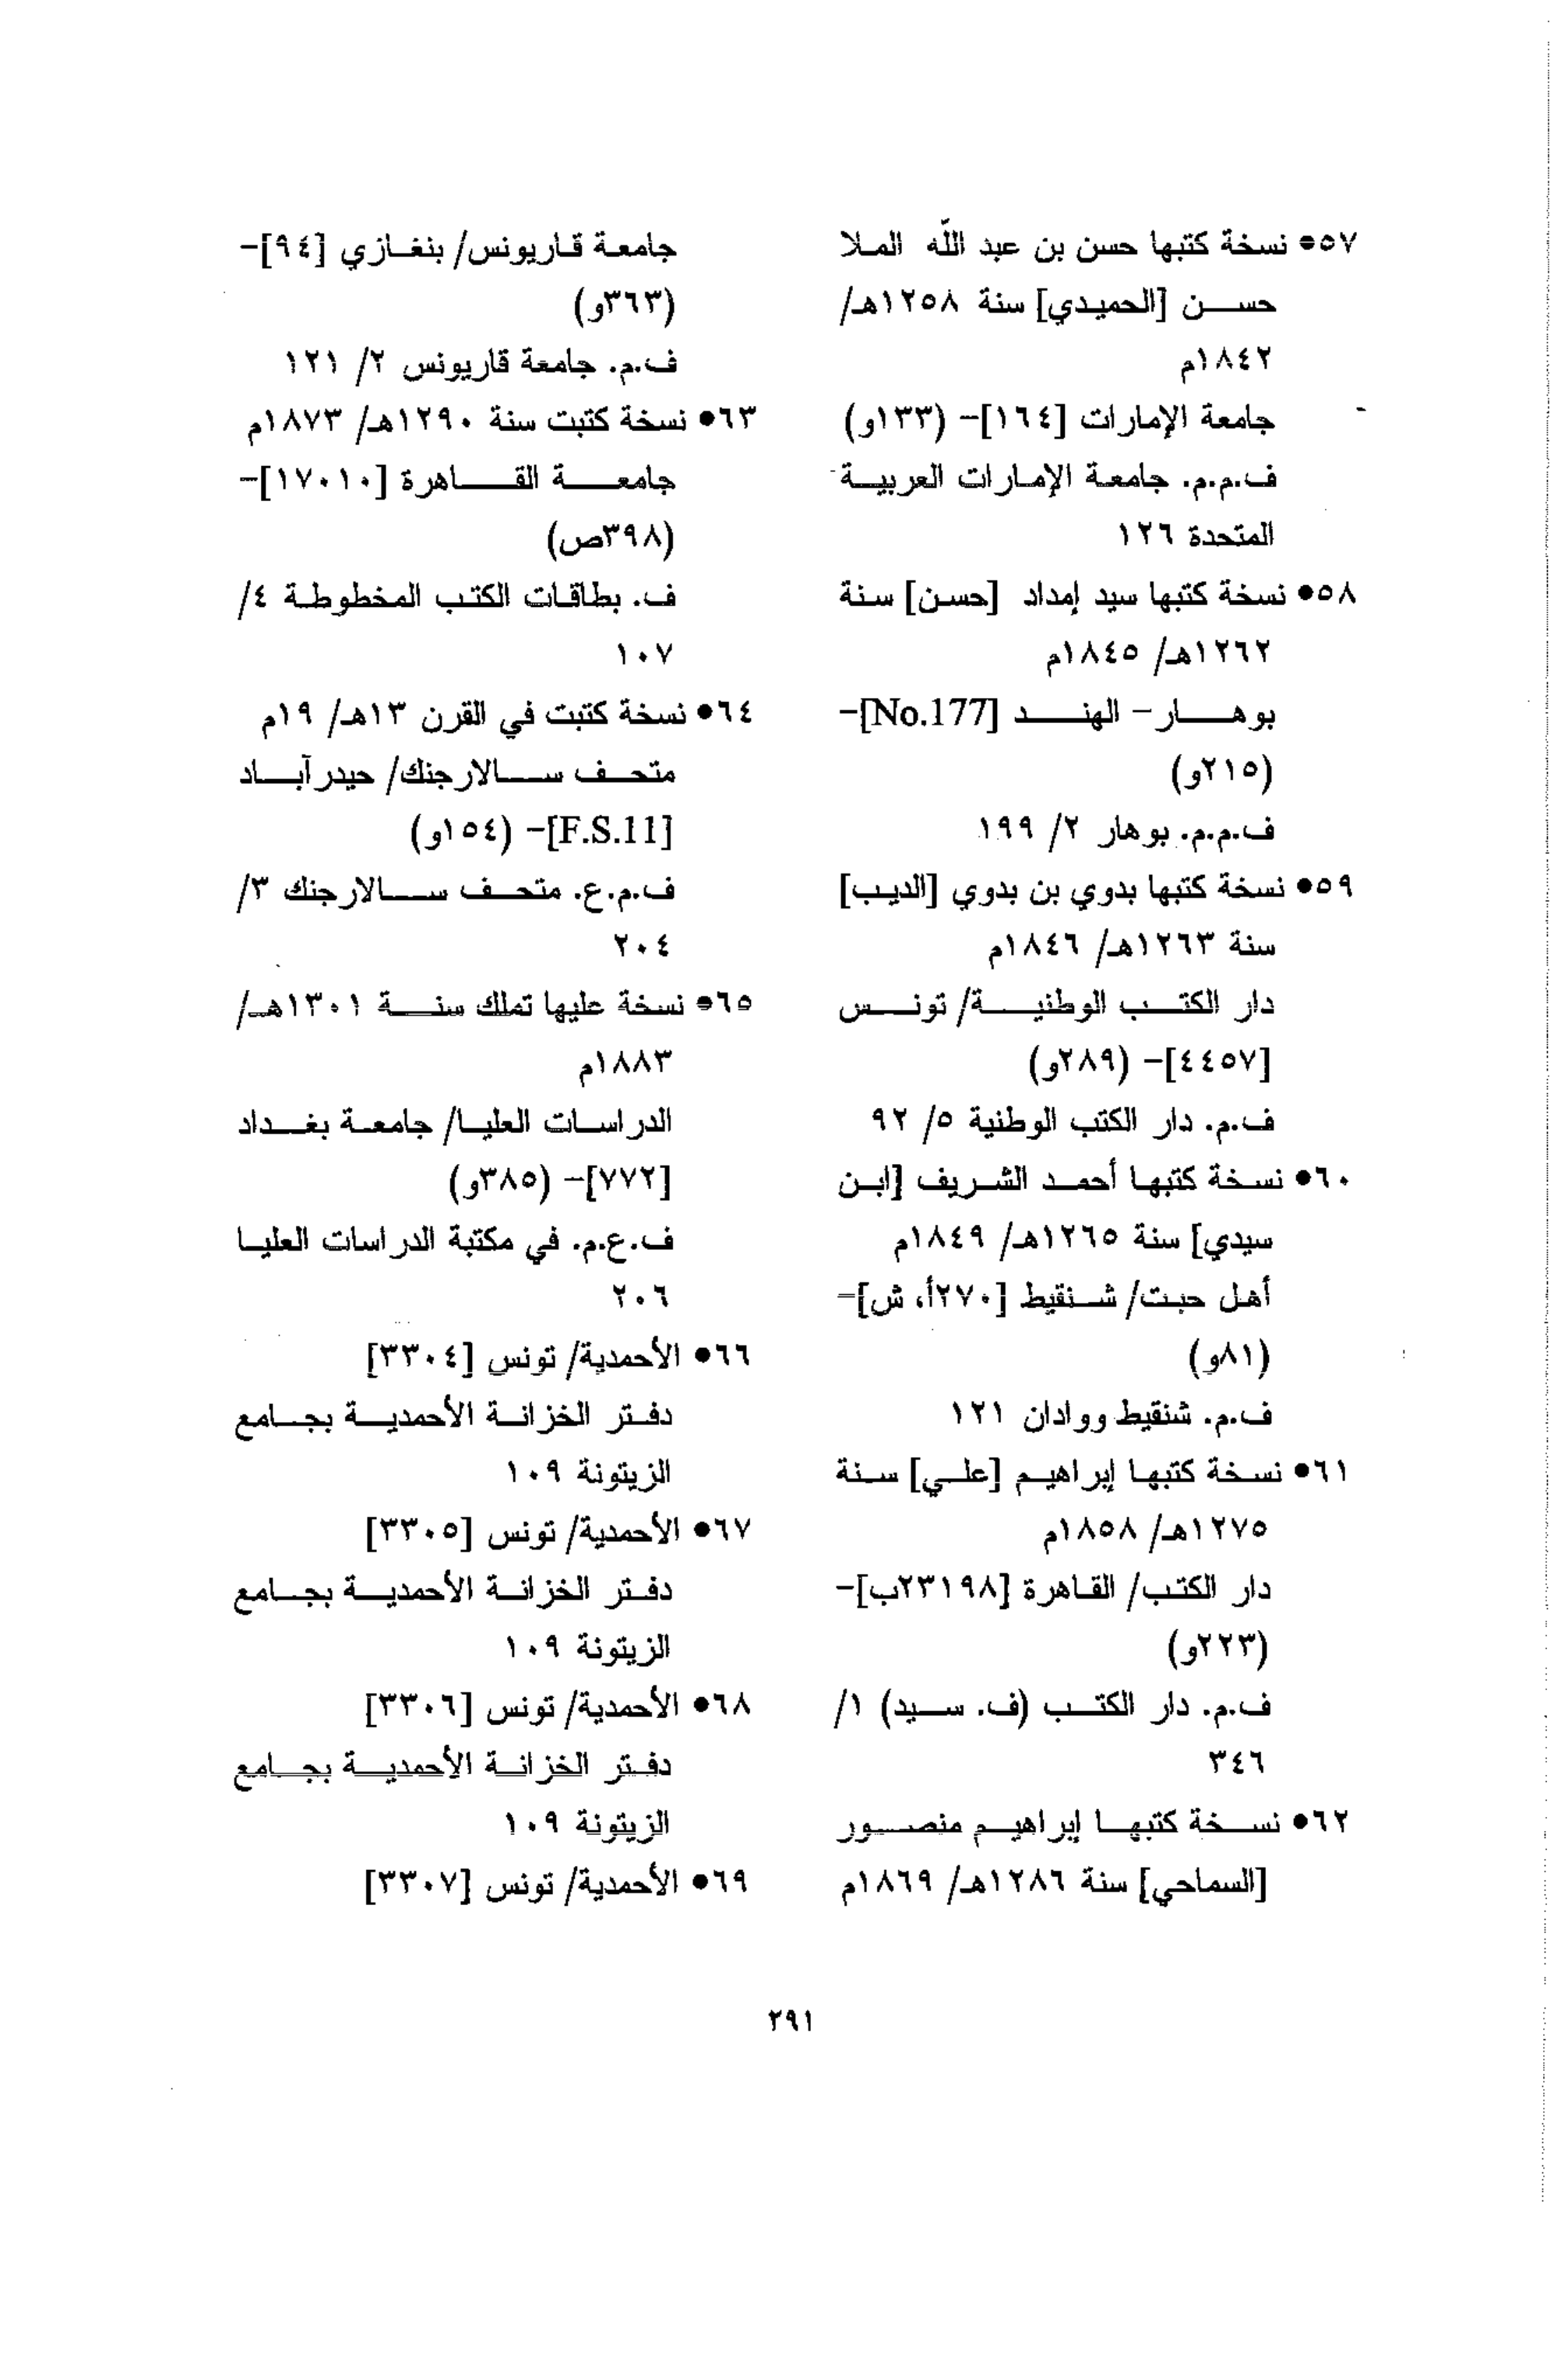 ٥٧• نسخة كتبها حسن بن عبد الله الملا
حسن [الحميدي] سنة ١٢٥٨هـ/
١٨٤٢م
جامعة الإمارات [١٦٤]- (١٣٣و)
ف.م.م. جامعة الإمارات العربية
المتحدة ١٢٦
٥٨• نسخة كتبها سيد إمداد [حسن] سنة
١٢٦٢هـ/ ١٨٤٥م
بوهار- الهند [No.177]-
(٢١٥و)
ف.م.م. بوهار ٢/ ١٩٩
٥٩• نسخة كتبها بدوي بن بدوي [الديب]
سنة ١٢٦٣هـ/ ١٨٤٦م
دار الكتب الوطنية/ تونس
[٤٤٥٧]- (٢٨٩و)
ف.م. دار الكتب الوطنية ٥/ ٩٢
٦٠• نسخة كتبها أحمد الشريف [ابن
سيدي] سنة ١٢٦٥هـ/ ١٨٤٩م
أهل حبت/ شنقيط [٢٧٠أ، ش]-
(٨١و)
ف.م. شنقيط ووادان ١٢١
٦١• نسخة كتبها إبراهيم [علي] سنة
١٢٧٥هـ/ ١٨٥٨م
دار الكتب/ القاهرة [٢٣١٩٨ب]-
(٢٢٣و)
ف.م. دار الكتب (ف. سيد) ١/
٣٤٦
٦٢• نسخة كتبها إبراهيم منصور
[السماحي] سنة ١٢٨٦هـ/ ١٨٦٩م
جامعة قاريونس/ بنغازي [٩٤]-
(٣٦٣و)
ف.م. جامعة قاريونس ٢/ ١٢١
٦٣• نسخة كتبت سنة ١٢٩٠هـ/ ١٨٧٣م
جامعة القاهرة [١٧٠١٠]-
(٣٩٨ص)
ف. بطاقات الكتب المخطوطة ٤/
١٠٧
٦٤• نسخة كتبت في القرن ١٣هـ/ ١٩م
متحف سالارجنك/ حيدرآباد
[F.S.11]- (١٥٤و)
ف.م.ع. متحف سالارجنك ٣/
٢٠٤
٦٥• نسخة عليها تملك سنة ١٣٠١هـ/
١٨٨٣م
الدراسات العليا/ جامعة بغداد
[٧٧٢]- (٣٨٥و)
ف.ع.م. في مكتبة الدراسات العليا
٢٠٦
٦٦• الأحمدية/ تونس [٣٣٠٤]
دفتر الخزانة الأحمدية بجامع
الزيتونة ١٠٩
٦٧• الأحمدية/ تونس [٣٣٠٥]
دفتر الخزانة الأحمدية بجامع
الزيتونة ١٠٩
٦٨• الأحمدية/ تونس [٣٣٠٦]
دفتر الخزانة الأحمدية بجامع
الزيتونة ١٠٩
٦٩• الأحمدية/ تونس [٣٣٠٧]
٢٩١